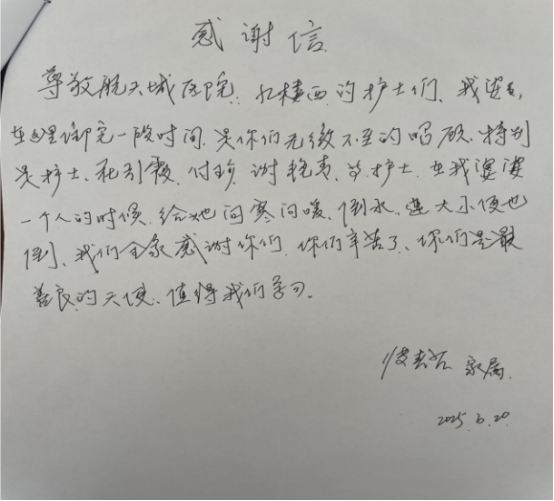 感谢信
尊敬航天城医院、红楼西的护士们、我婆婆,
在这里御完一段时间、是你们无微不至的照顾、特别
是护士、 付珍、谢艳 、等护士、在我婆婆
一个人的时候、给她问寒问暖、倒水、连大小便也
倒、我们全家感谢你们、你们辛苦了、你们是最
善良的天使、值得我们学习。
家属
2025.6.20